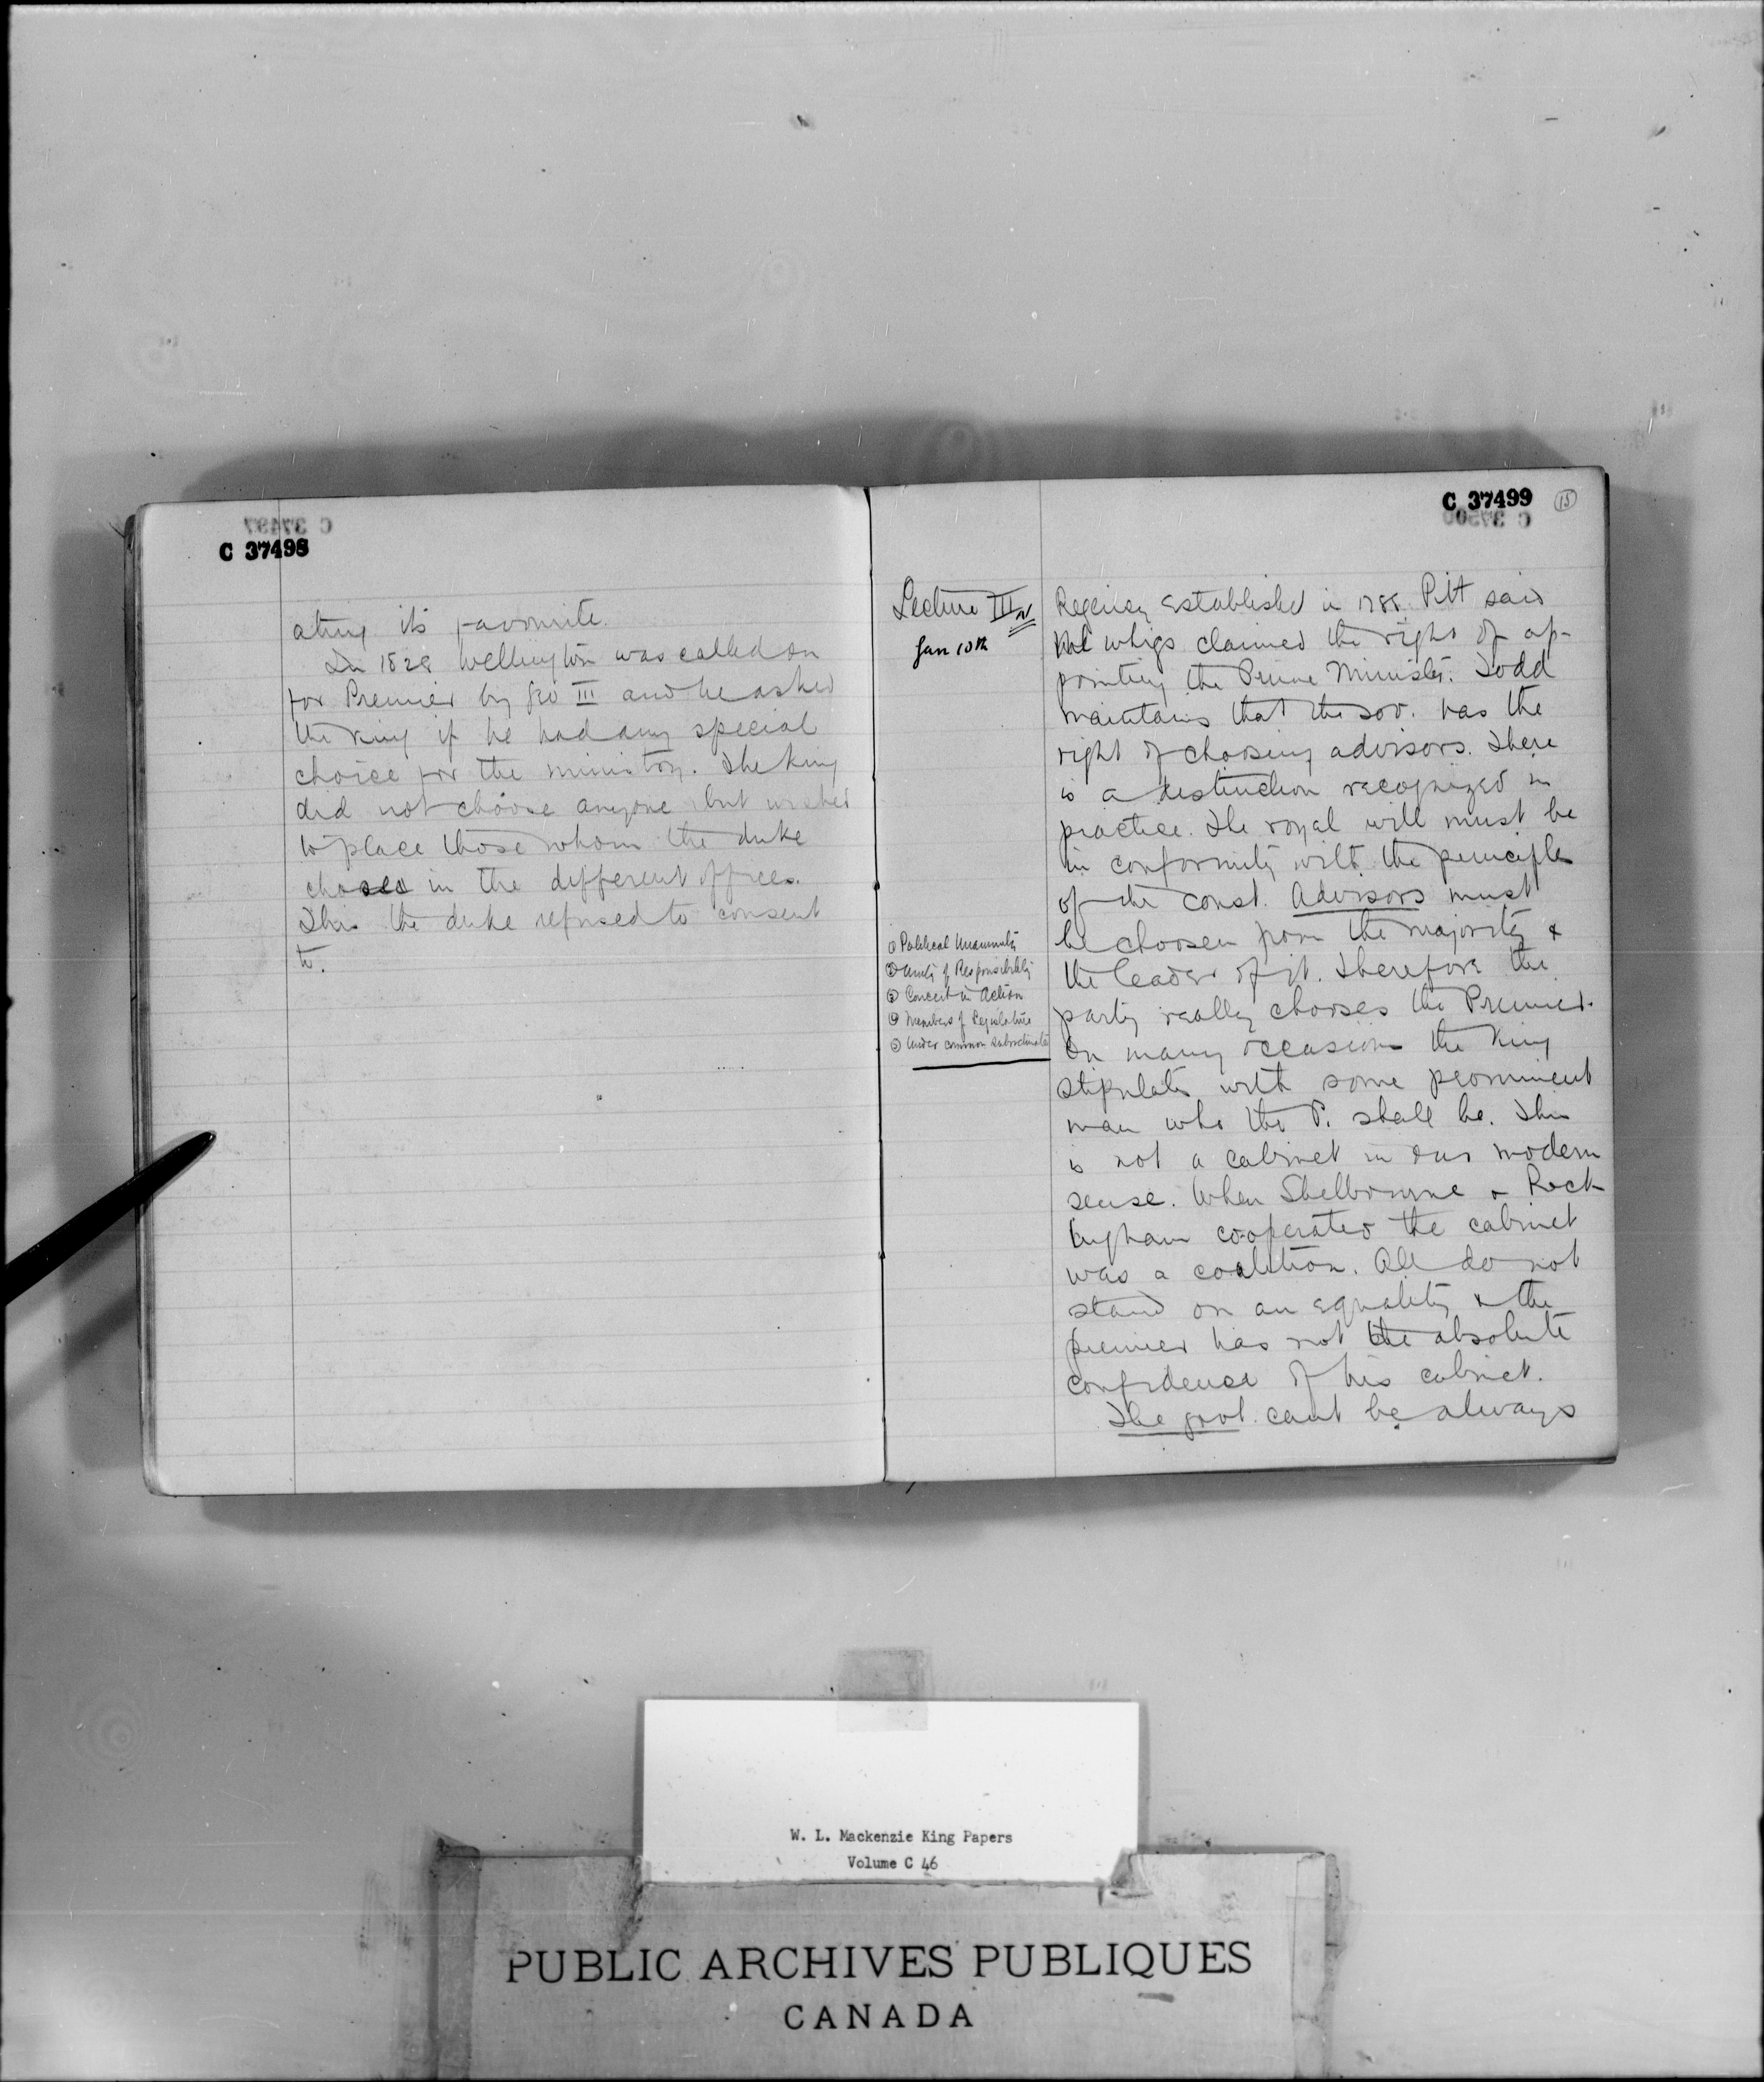 C 37498
ating its favourite.
In 1828 Wellington was called on
for Premier by Geo III and he asked
the king if he had any special
choice for the ministry. The king
did not choose anyone but wished
to place those whom the duke
chosed in the different offices.
This the duke refused to consent
to.
C 37499
15
Lecture III
Jan 10th
Regency established in 1788. Pitt said
whigs claimed the right of ap-
pointing the Prime Minister. Todd
maintains that the sov. has the
right of choosing advisors. There
is a distinction recognized in
practice. The royal will must be
in conformity with the principles
of the const. Advisors must
be choosen from the majority &
the leader of it. Therefore the
party really chooses the Premier.
On many occasions the King
stipulates with some prominent
man who the P. shall be. This
is not a cabinet in our modern
sense. When Shelbourne & Rock
ingham cooperated the cabinet
was a coalition. All do not
stand on an equality & the
premier has not the absolute
confidence of his cabinet.
The govt. cant be always
① Political Unanimity
② Unity of Responsibility
③ Concert in Action
④ Members of Legislature
⑤ Under common subordinate
W. L. Mackenzie King Papers
Volume C 46
PUBLIC ARCHIVES PUBLIQUES
CANADA